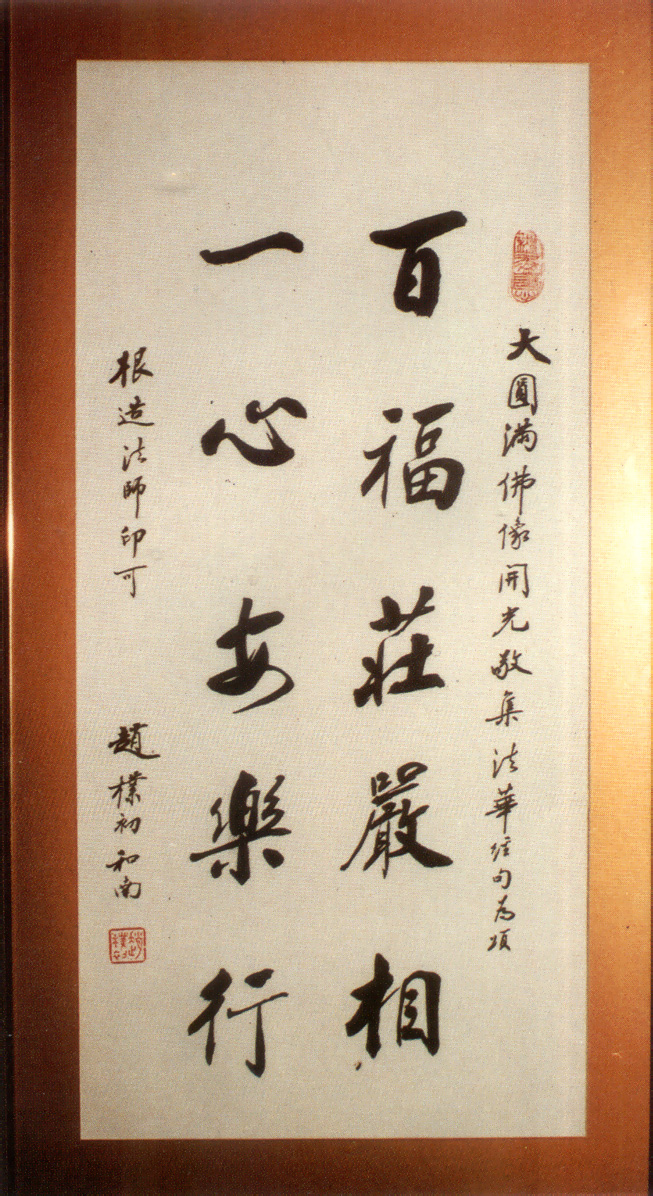 大圓滿佛像開光敬集法華經句為頌
百福莊嚴相
一心安樂行
根造法師印可
趙樸初和南